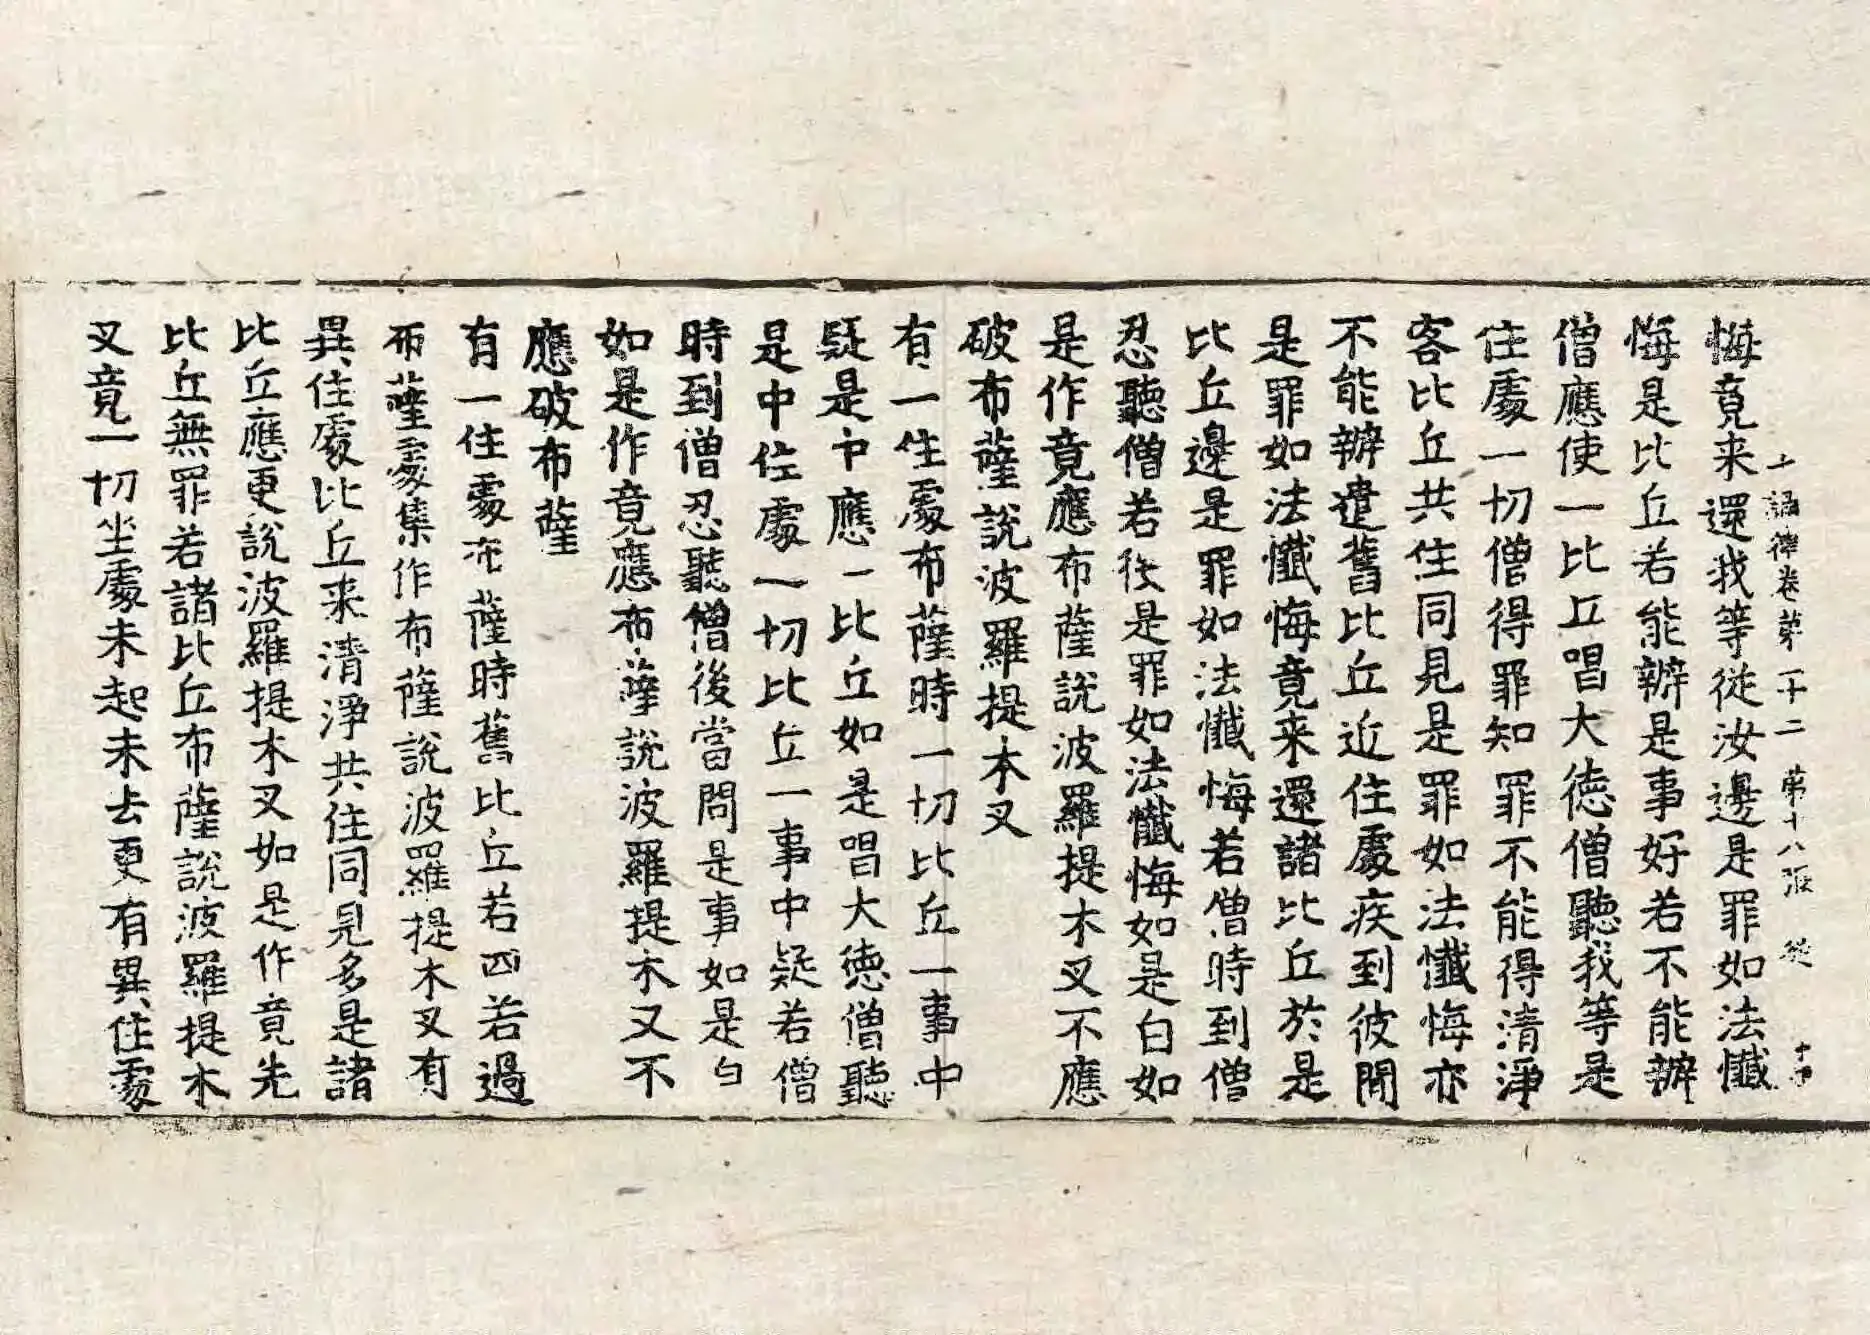 十誦律卷苐二十二　苐十八張　從
悔竟来還我等從汝邊是罪如法懺
悔是比丘若能辦是事好若不能辦
僧應使一比丘唱大徳僧聽我等是
住處一切僧得罪知罪不能得清淨
客比丘共住同見是罪如法懺悔亦
不能辦遣舊比丘近住處疾到彼間
是罪如法懺悔竟来還諸比丘於是
比丘邊是罪如法懺悔若僧時到僧
忍聽僧若後是罪如法懺悔如是白如
是作竟應布薩說波羅提木叉不應
破布薩說波羅提木叉
有一住處布薩時一切比丘一事中
疑是中應一比丘如是唱大徳僧聽
是中住處一切比丘一事中疑若僧
時到僧忍聽僧後當問是事如是白
如是作竟應布薩說波羅提木叉不
應破布薩
有一住處布薩時舊比丘若四若過
布薩處集作布薩說波羅提木叉有
異住處比丘来清淨共住同見多是諸
比丘應更說波羅提木叉如是作竟先
比丘無罪若諸比丘布薩說波羅提木
叉竟一切坐處未起未去更有異住處